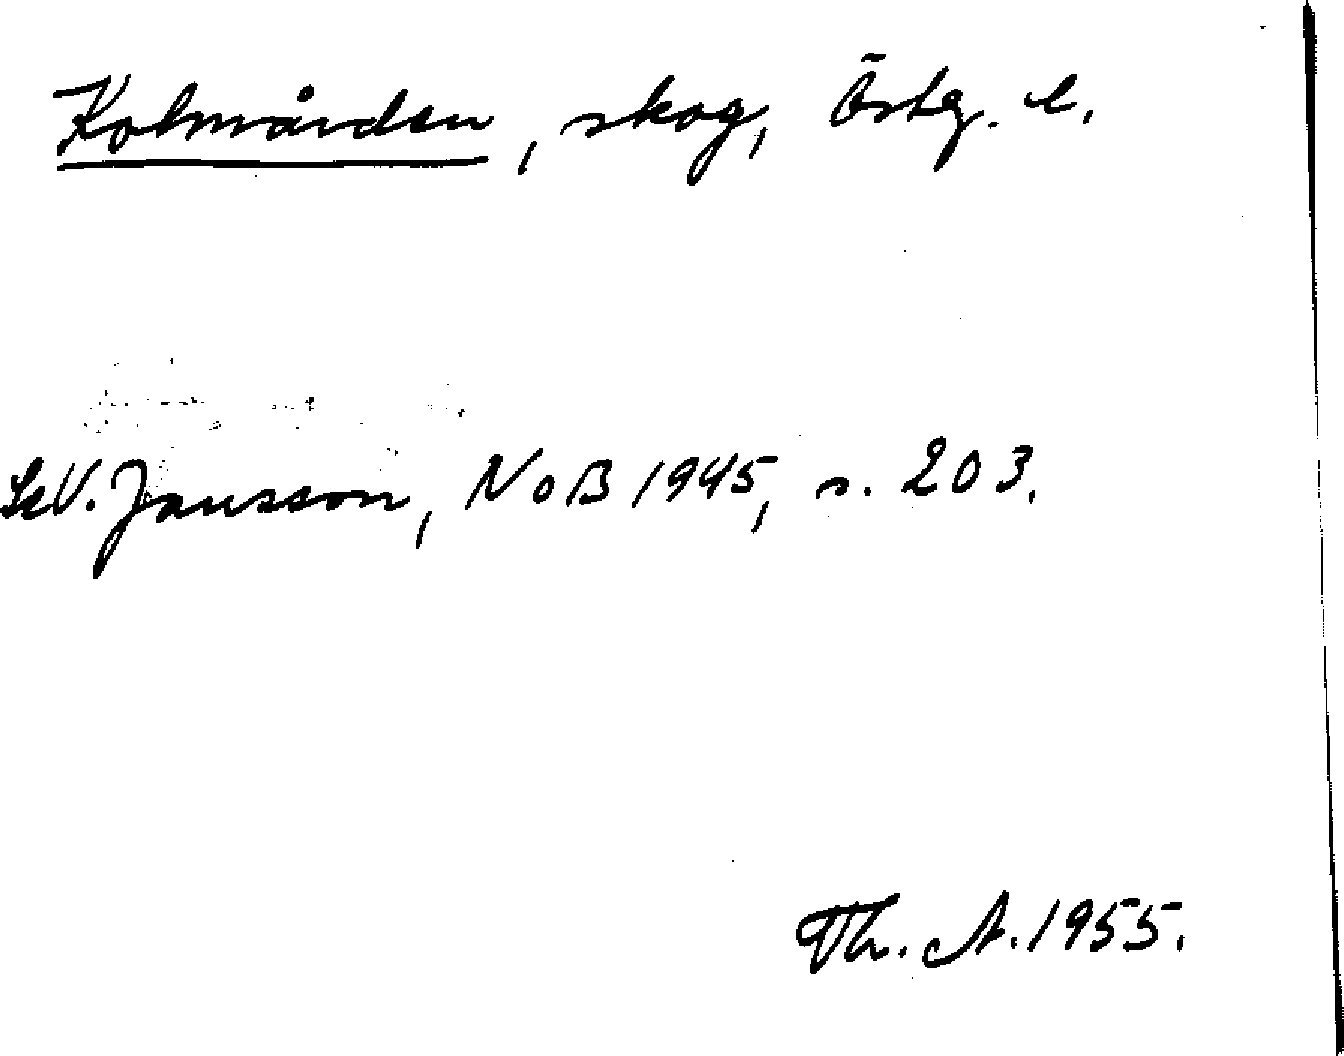 Kolmården, skog, Östg. l.
Jansson, NoB 1945, s. 203.
Th. A. 1955.